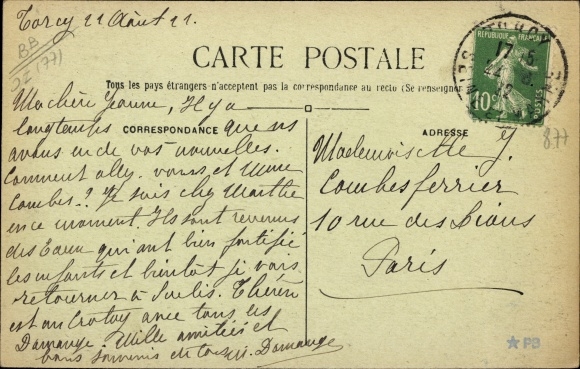 Torcy 22 Août 21.
BB
(77)
CARTE POSTALE
Tous les pays étrangers n'acceptent pas la correspondance au recto (Se renseigner
CORRESPONDANCE
ADRESSE
Ma chère Jeanne, Il y a
longtemps que ns
avons eu de vos nouvelles.
Comment allez-vous et Mme
Combes? Je suis chez Marthe
en ce moment. Ils sont revenus
des Eaux qui ont bien fortifié
les enfants et bientôt je vais
retourner à
est au Crotoy avec tous les
Damange. Mille amitiés et
bons souvenirs de tous. Damange
REPUBLIQUE FRANÇAISE
10c
POSTES
17-5
22-8
Mademoiselle J.
Combesferrier
10 rue des Lions
Paris
877
PB